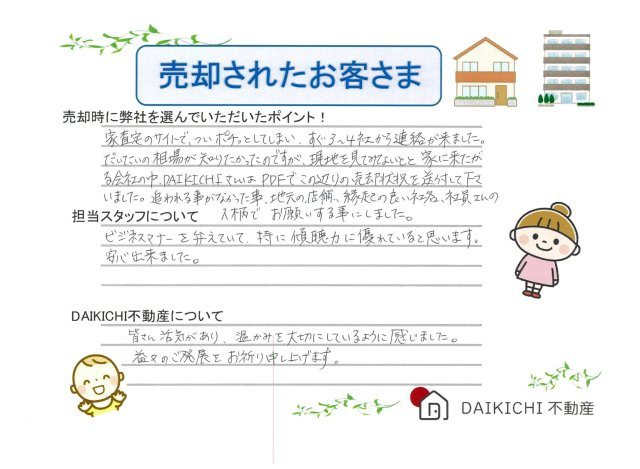 売却されたお客さま
売却時に弊社を選んでいただいたポイント！
家査定のサイトで、ついポチッとしてしまい、すぐ3〜4社から連絡が来ました。
だいたいの相場が知りたかったのですが、現地を見てみてないとと家に来たが
る会社の中、DAIKICHIさんはPDFでこの辺りの売却状況を送付して下さ
いました。追われる事がなかった事、地元の店舗、縁起の良い社名、社員さんの
人柄で お願いする事にしました。
担当スタッフについて
ビジネスマナーを弁えていて、特に傾聴力に優れていると思います。
安心出来ました。
DAIKICHI不動産について
皆さん活気があり、温かみを大切にしているように感じました。
益々のご発展をお祈り申し上げます。
DAIKICHI 不動産